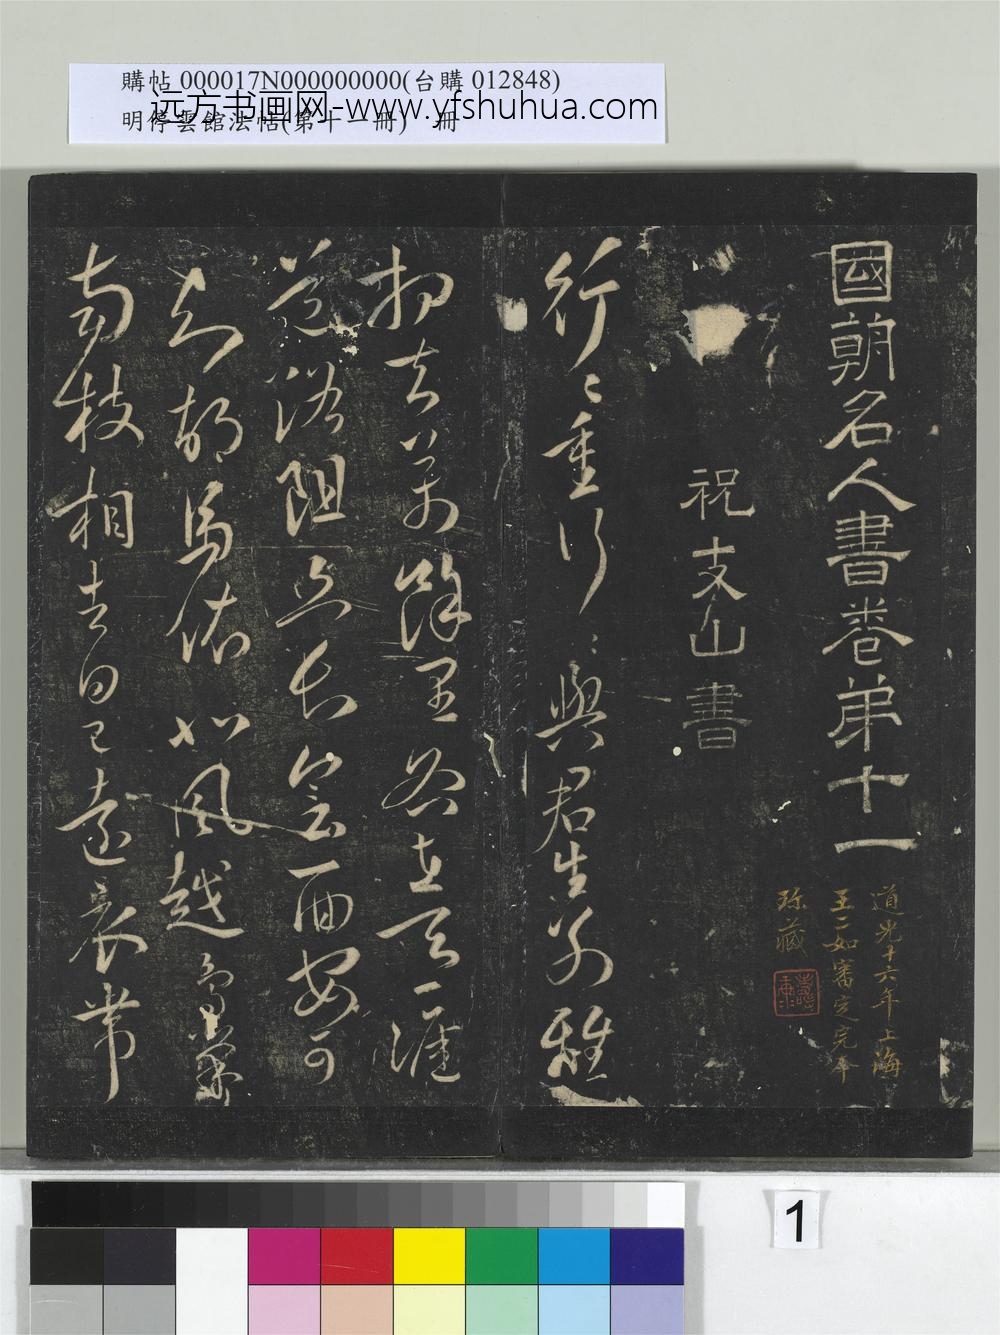 購帖 000017N000000000(台購 012848)
远方书画网-www.yfshuhua.com
明停雲館法帖(第十一冊) 冊
國朝名人書卷弟十一
道光十六年上海
王二如審定完本
珍藏
祝支山書
行〻重行〻與君生別離
相去萬餘里各在天一涯
道路阻且長會面安可
知胡馬依北風越鳥巢
南枝相去日已遠衣帶
1